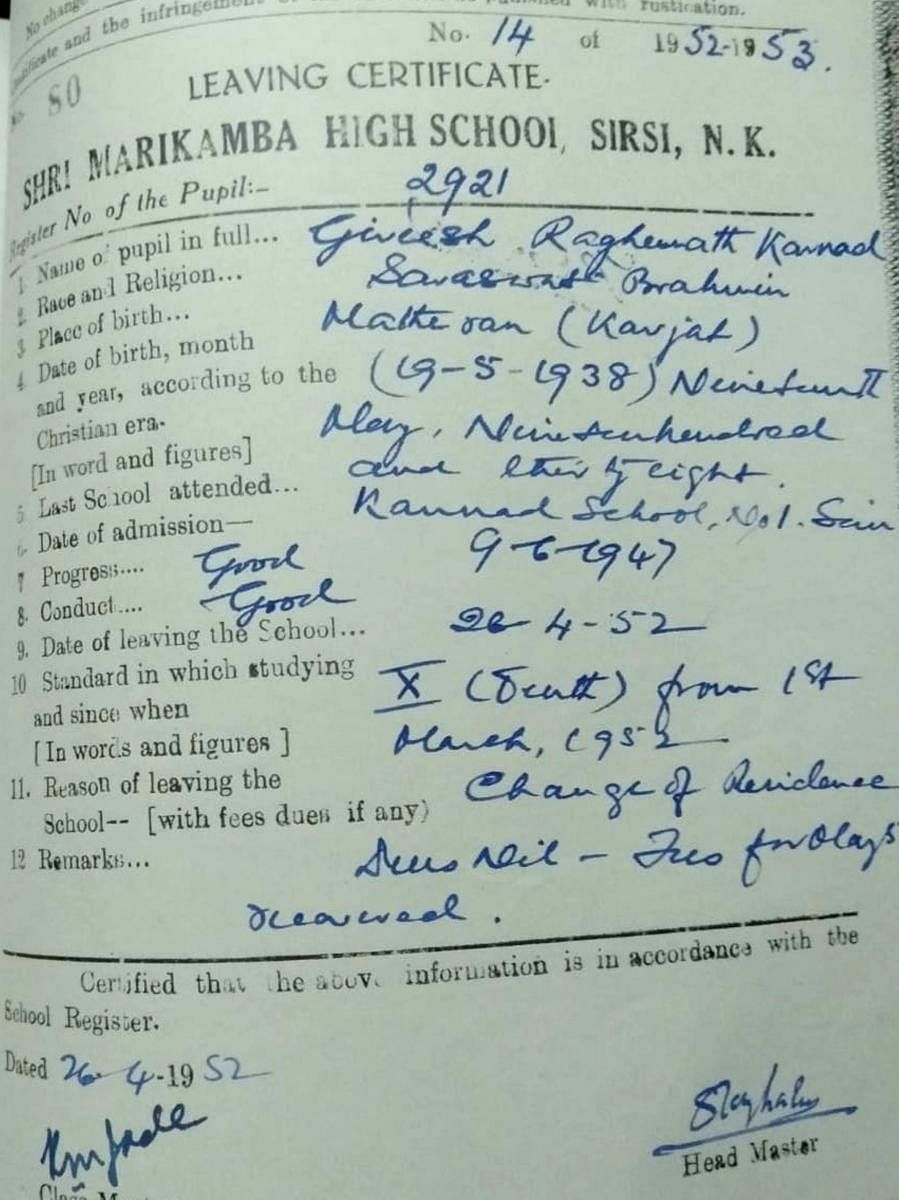 No change
and the infringement of with rustication.
No. 14 of 1952-1953.
No. 80
LEAVING CERTIFICATE.
SHRI MARIKAMBA HIGH SCHOOL, SIRSI, N. K.
Register No of the Pupil:- 2921
1 Name of pupil in full... Gireesh Raghunath Karnad
2 Race and Religion... Saraswat Brahmin
3 Place of birth... Matheran (Karjat)
4 Date of birth, month (19-5-1938) Nineteenth
and year, according to the
Christian era. May, Nineteenhundred
[In word and figures] and thirty eight.
5 Last School attended... Kannad School, No1. Sirsi
6 Date of admission— 9-6-1947
7 Progress.... Good
8. Conduct.... Good
9. Date of leaving the School... 26-4-52
10 Standard in which studying X (Tenth) from 1st
and since when
[In words and figures ] March, 1952
11. Reason of leaving the Change of Residence
School-- [with fees dues if any)
12 Remarks... Dues Nil - Fees for May
recovered.
Certified that the above information is in accordance with the
School Register.
Dated 26-4-1952
Head Master
Class